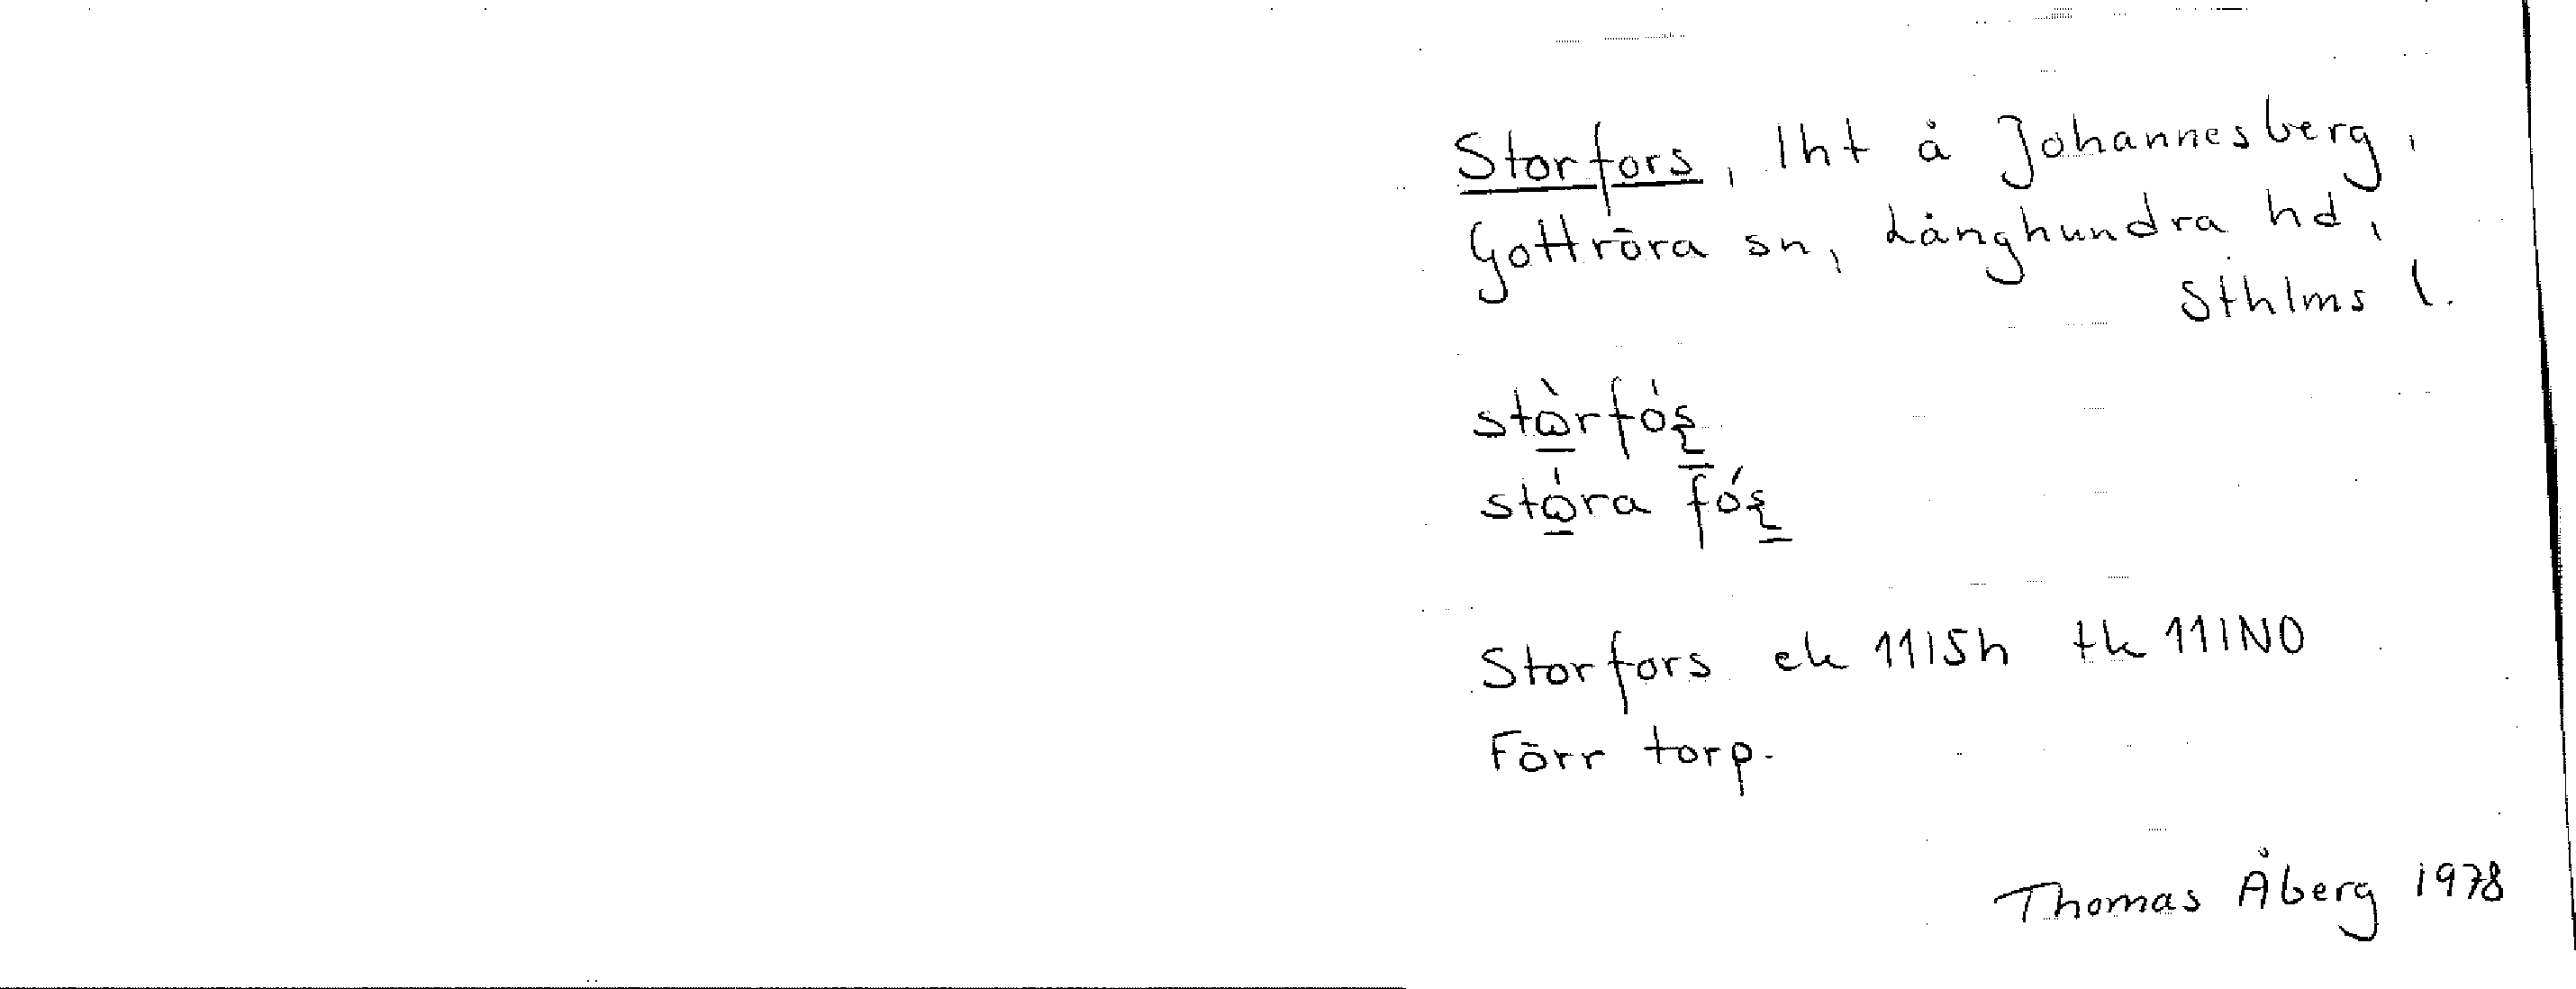 Storfors, lht å Johannesberg,
Gottröra sn, Långhundra hd,
Sthlms l.
stὼrfóʂ
stώra fóʂ
Storfors ek 11I5h tk 11INO
Förr torp.
Thomas Åberg 1978